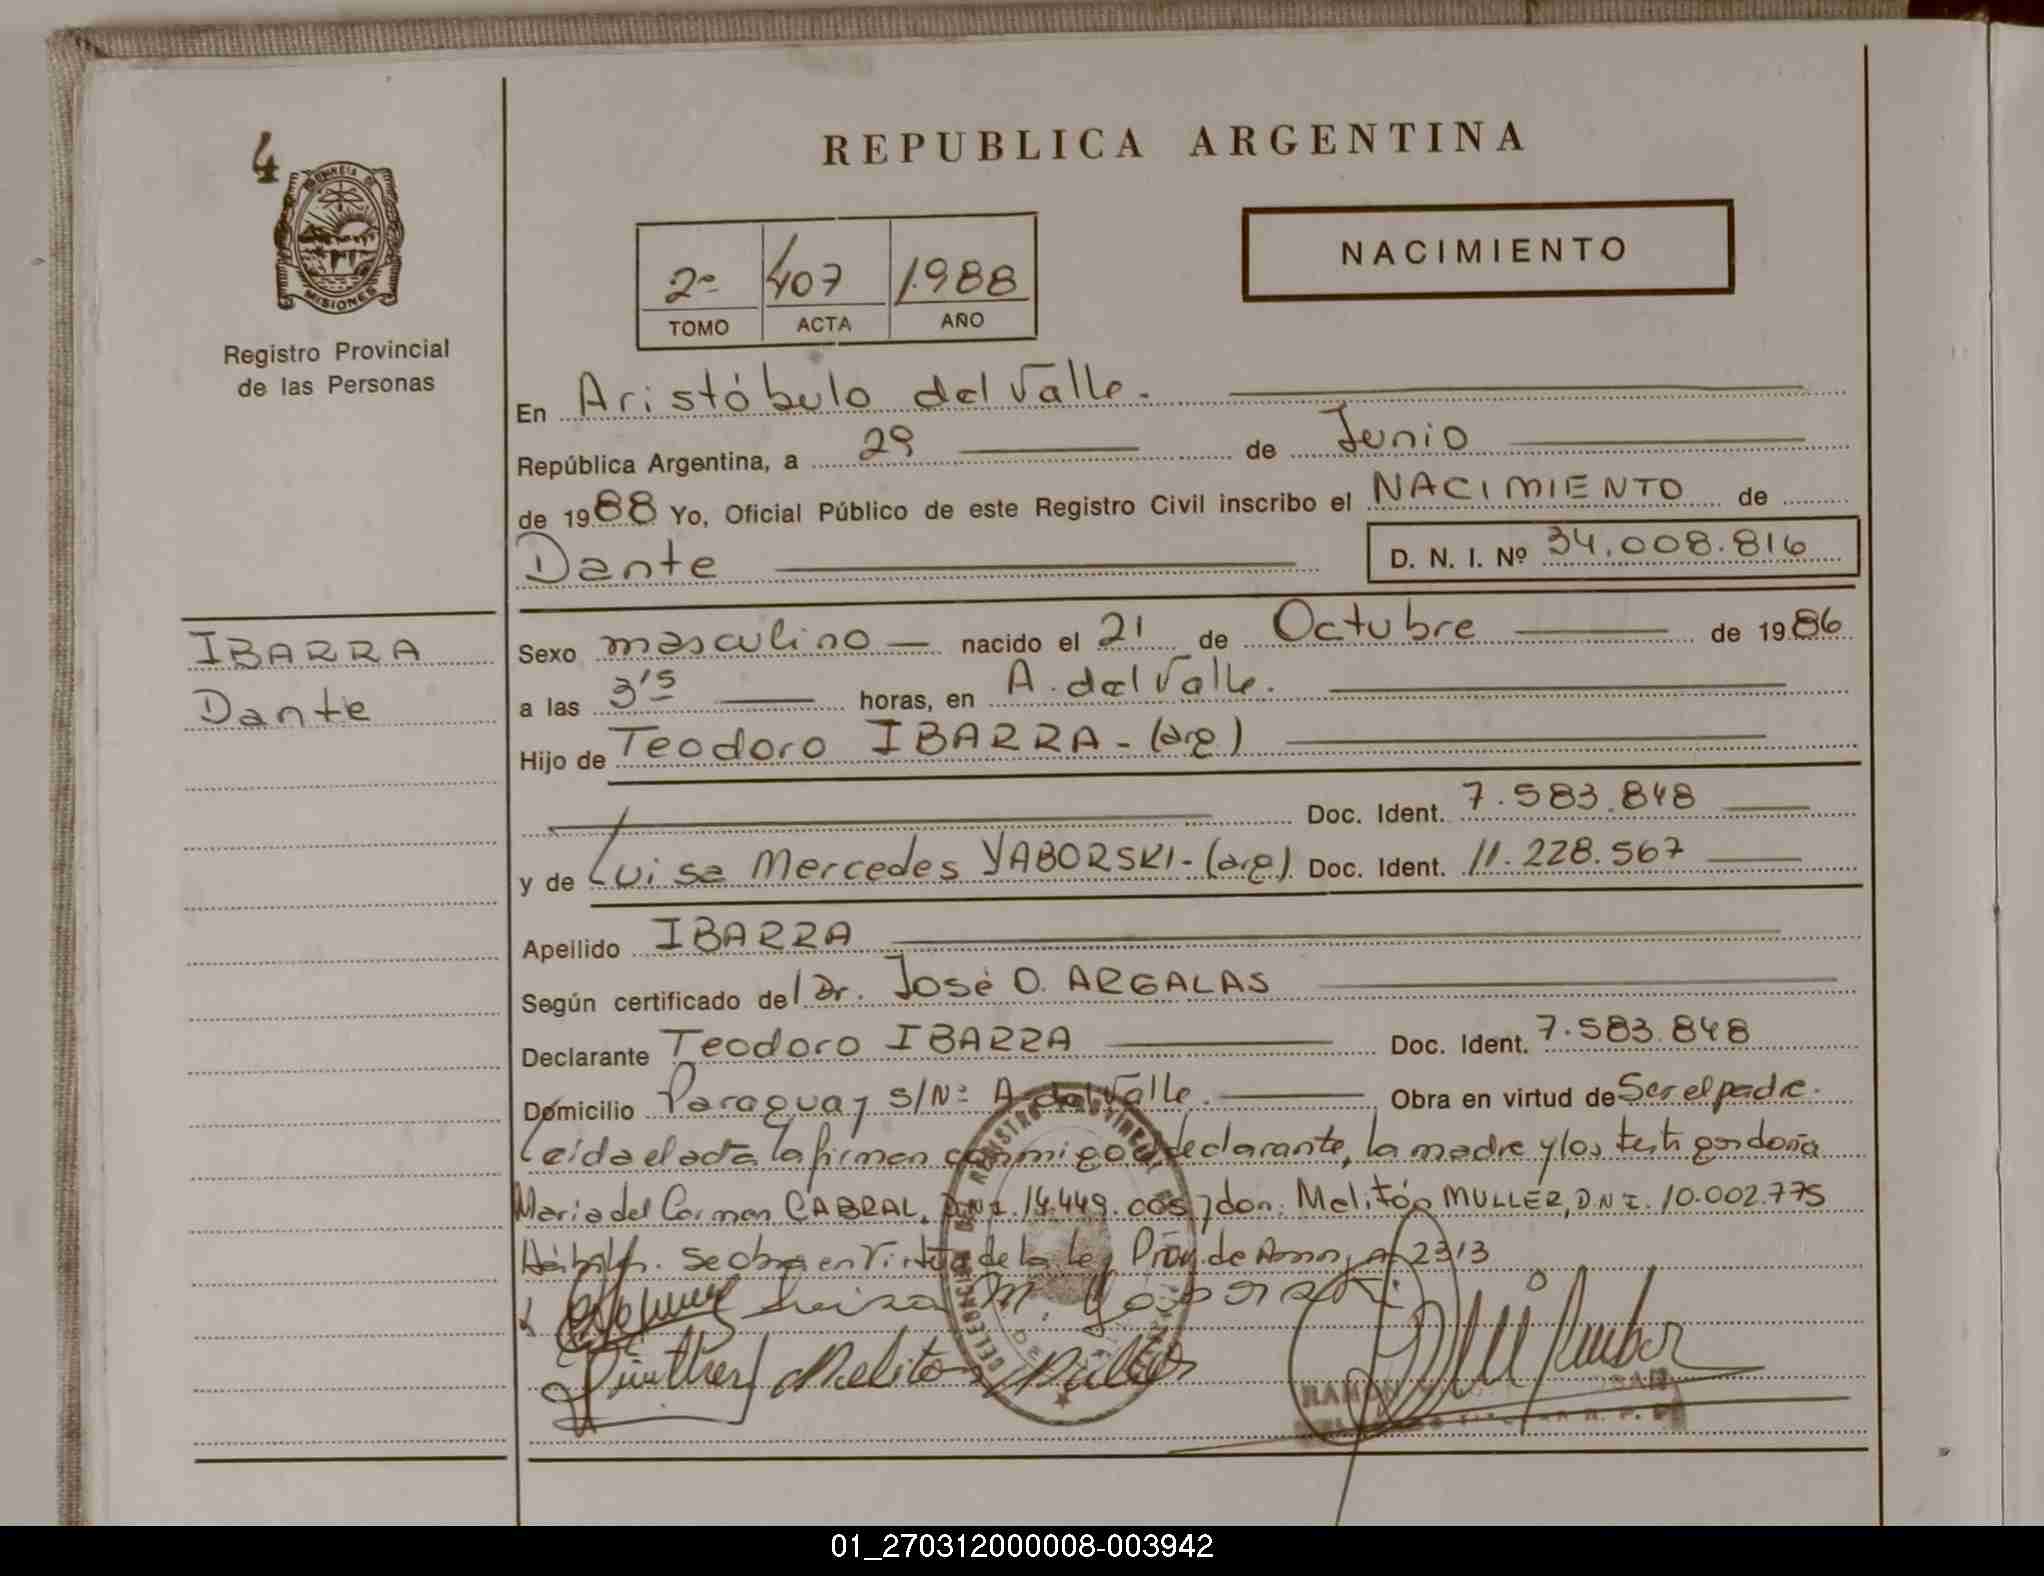 4
PROVINCIA DE
MISIONES
Registro Provincial
de las Personas
IBARRA
Dante
REPUBLICA ARGENTINA
2º 407 1.988
TOMO ACTA AÑO
NACIMIENTO
En Aristóbulo del Valle.
República Argentina, a 29 de Junio
de 1988 Yo, Oficial Público de este Registro Civil inscribo el NACIMIENTO de
Dante D. N. I. Nº 34.008.816
Sexo masculino nacido el 21 de Octubre de 1986
a las 3'5 horas, en A. del Valle.
Hijo de Teodoro IBARRA - (arg)
Doc. Ident. 7.583.848
y de Luisa Mercedes YABORSKI - (arg) Doc. Ident. 11.228.567
Apellido IBARRA
Según certificado del Dr. José O. ARGALAS
Declarante Teodoro IBARRA Doc. Ident. 7.583.848
Domicilio Paraguay S/Nº A. del Valle. Obra en virtud de Ser el padre.
Leída el acta la firman conmigo el declarante, la madre y los testigos doña
Maria del Carmen CABRAL, DNI. 14.449.005 y don: Melitón MULLER, DNI. 10.002.775
Hábiles. Se obra en Virtud de la Ley Prov. de Amn. nº 2313
Luisa M. Yaborski
Meliton Muller
RAMON
01_270312000008-003942